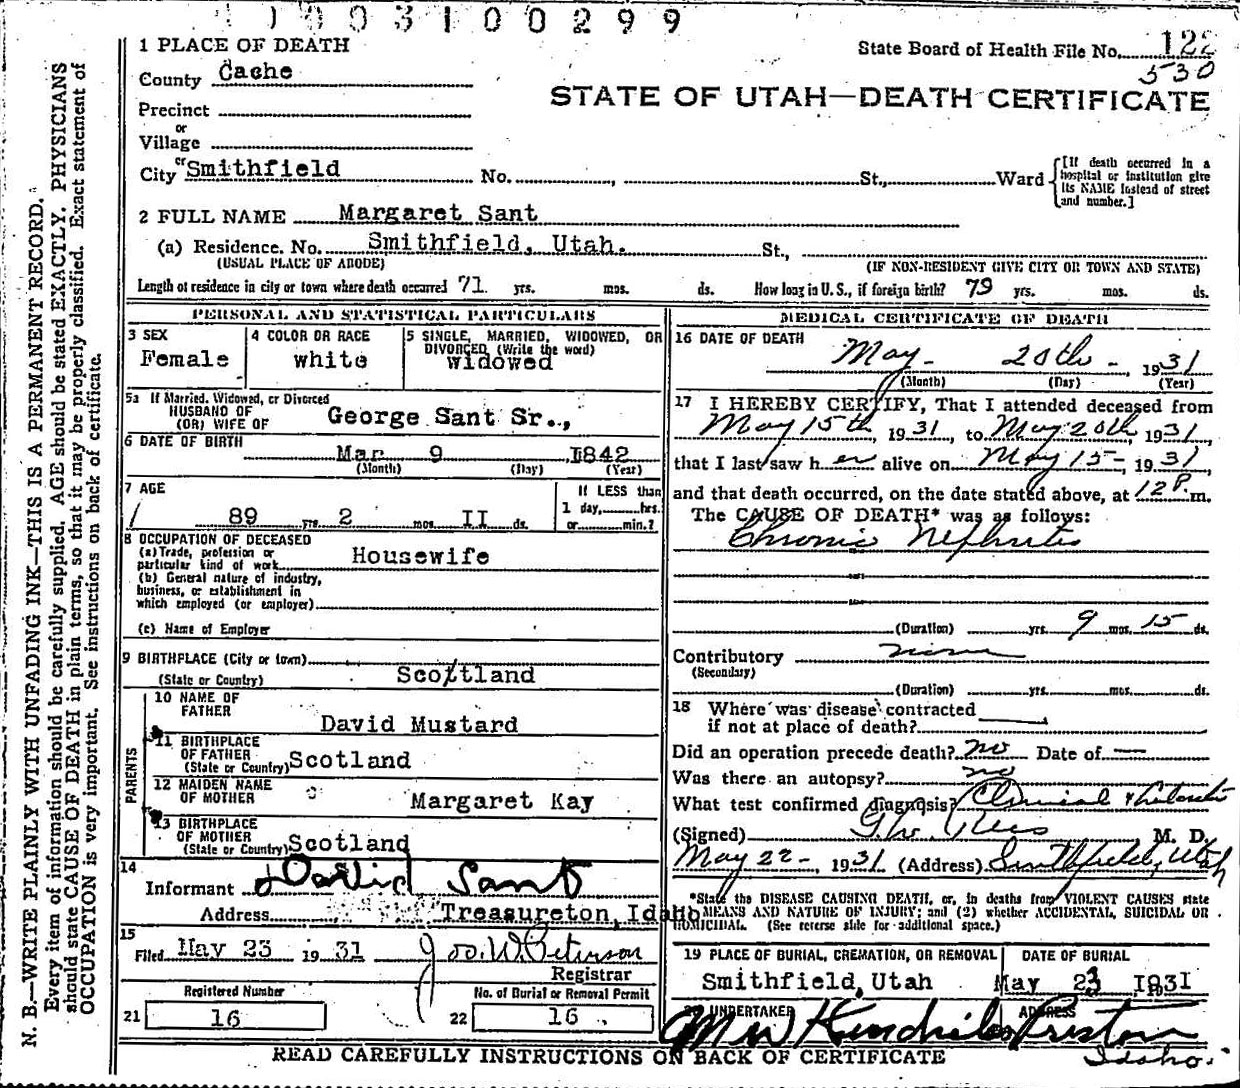 1003100299
1 PLACE OF DEATH
State Board of Health File No. 122
530
County Cache
STATE OF UTAH—DEATH CERTIFICATE
Precinct
or
Village
or
City Smithfield No. , St., Ward
[If death occurred in a hospital or institution give its NAME instead of street and number.]
2 FULL NAME Margaret Sant
(a) Residence. No. Smithfield, Utah. St.,
(USUAL PLACE OF ABODE) (IF NON-RESIDENT GIVE CITY OR TOWN AND STATE)
Length of residence in city or town where death occurred 71 yrs. mos. ds. How long in U. S., if foreign birth? 79 yrs. mos. ds.
PERSONAL AND STATISTICAL PARTICULARS
3 SEX
Female
4 COLOR OR RACE
white
5 SINGLE, MARRIED, WIDOWED, OR
DIVORCED (Write the word)
widowed
5a If Married, Widowed, or Divorced
HUSBAND OF
(OR) WIFE OF George Sant Sr.,
6 DATE OF BIRTH
Mar 9 1842
(Month) (Day) (Year)
7 AGE
89 yrs. 2 mos. II ds.
If LESS than
1 day, hrs.
or min.?
8 OCCUPATION OF DECEASED
(a) Trade, profession or
particular kind of work Housewife
(b) General nature of industry,
business, or establishment in
which employed (or employer)
(c) Name of Employer
9 BIRTHPLACE (City or town)
(State or Country) Scotland
PARENTS
10 NAME OF
FATHER
David Mustard
11 BIRTHPLACE
OF FATHER
(State or Country) Scotland
12 MAIDEN NAME
OF MOTHER Margaret Kay
13 BIRTHPLACE
OF MOTHER
(State or Country) Scotland
14
Informant David Sant
Address Treasureton, Idaho
15
Filed May 23 1931 Jos. W. Peterson
Registrar
Registered Number
21 16
No. of Burial or Removal Permit
22 16
MEDICAL CERTIFICATE OF DEATH
16 DATE OF DEATH
May - 20th - , 1931
(Month) (Day) (Year)
17 I HEREBY CERTIFY, That I attended deceased from
May 15th, 1931, to May 20th, 1931,
that I last saw her alive on May 15-, 1931,
and that death occurred, on the date stated above, at 12 P. m.
The CAUSE OF DEATH* was as follows:
Chronic Nephritis
(Duration) yrs. 9 mos. 15 ds.
Contributory none
(Secondary)
(Duration) yrs. mos. ds.
18 Where was disease contracted
if not at place of death?
Did an operation precede death? no Date of —
Was there an autopsy? no
What test confirmed diagnosis? Clinical &
(Signed) M. D.
May 22-, 1931 (Address) Smithfield, Utah
*State the DISEASE CAUSING DEATH, or, in deaths from VIOLENT CAUSES state
MEANS AND NATURE OF INJURY; and (2) whether ACCIDENTAL, SUICIDAL OR
HOMICIDAL. (See reverse side for additional space.)
19 PLACE OF BURIAL, CREMATION, OR REMOVAL
Smithfield, Utah
DATE OF BURIAL
May 23 1931
20 UNDERTAKER
M W
ADDRESS
Preston
Idaho.
READ CAREFULLY INSTRUCTIONS ON BACK OF CERTIFICATE
N. B.—WRITE PLAINLY WITH UNFADING INK—THIS IS A PERMANENT RECORD.
Every item of information should be carefully supplied. AGE should be stated EXACTLY. PHYSICIANS
should state CAUSE OF DEATH in plain terms, so that it may be properly classified. Exact statement of
OCCUPATION is very important. See instructions on back of certificate.